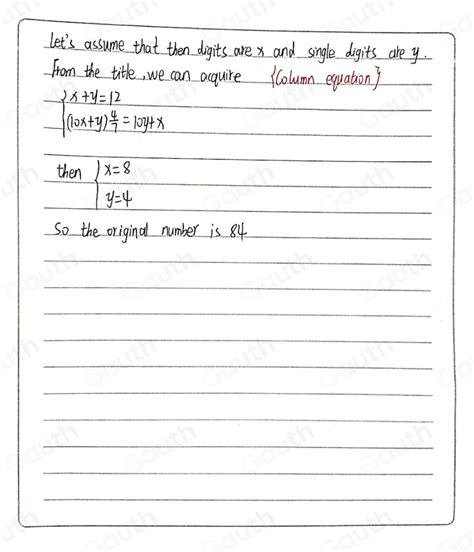 Let's assume that then digits are x and single digits are y.
From the title, we can acquire {Column equation}
{ x+y=12
(10x+y) 4/7 = 10y+x
then { x=8
y=4
So the original number is 84
Gauth